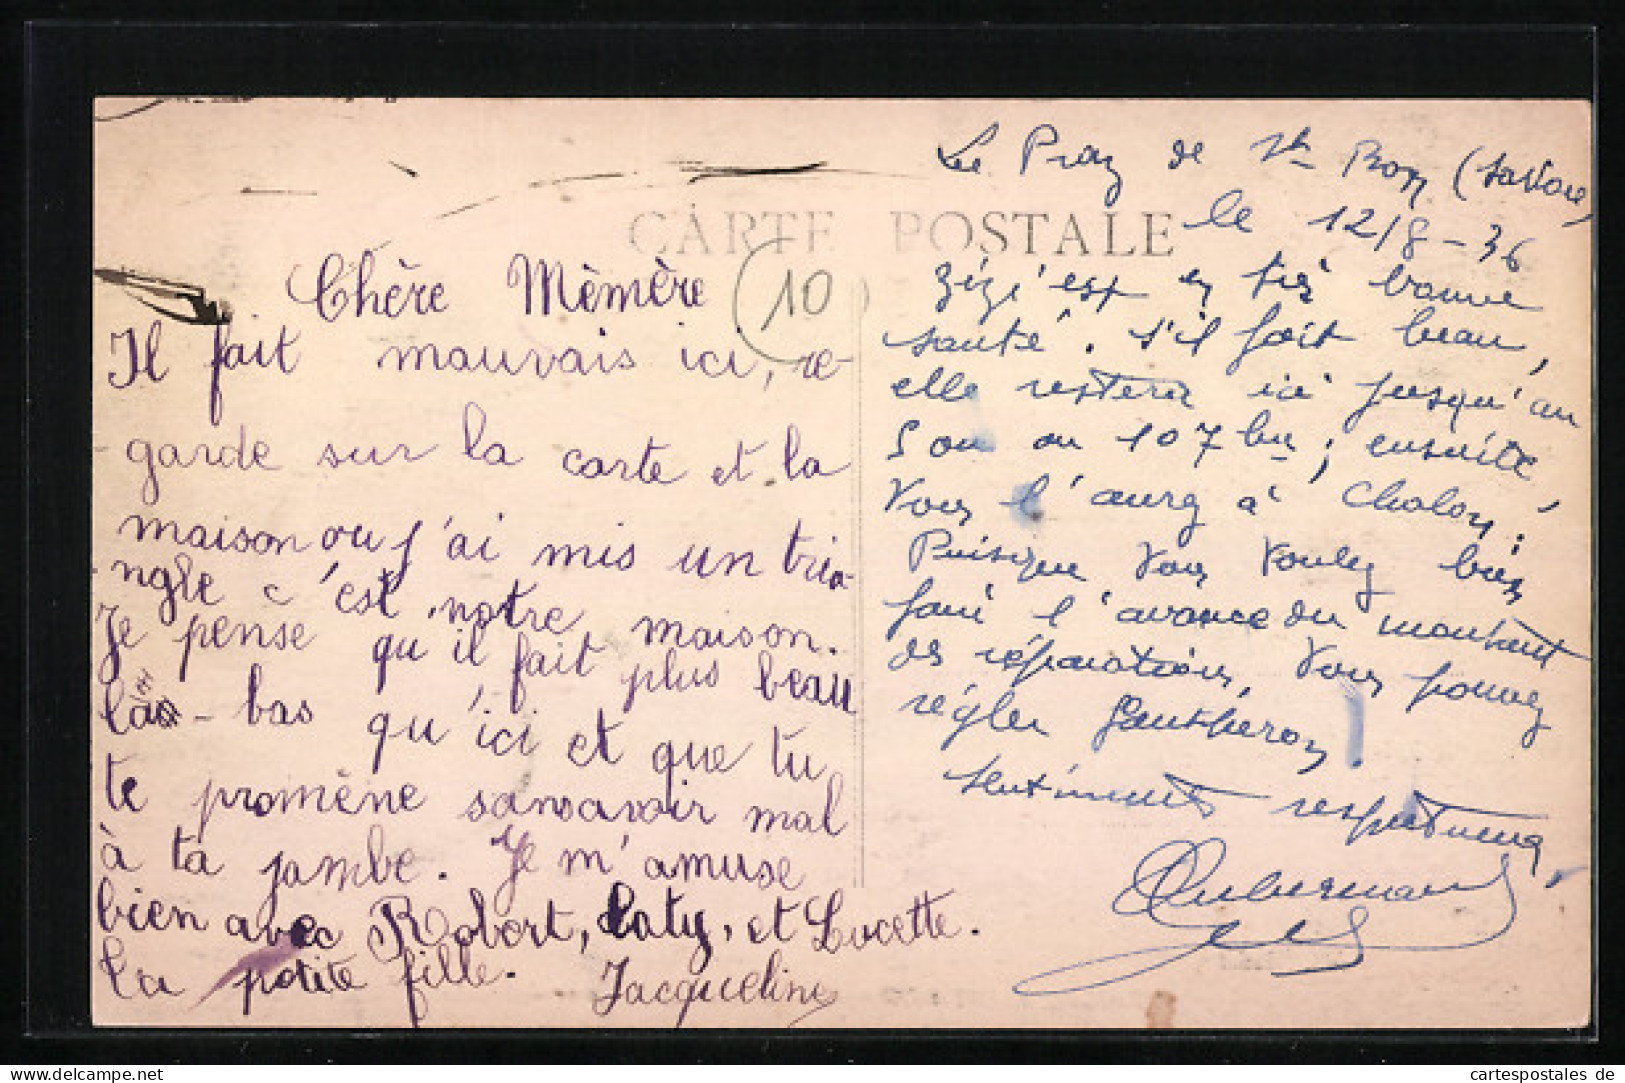 CARTE POSTALE
10
Chère Mèmère
Il fait mauvais ici, re-
garde sur la carte et la
maison ou j'ai mis un tria-
ngle c'est notre maison.
Je pense qu'il fait plus beau
là - bas qu'ici et que tu
te promène sansavoir mal
à ta jambe. Je m'amuse
bien avec Robert, Caty, et Lucette.
la petite fille. Jacqueline
Le Praz de St Bon (Savoie)
le 12/8-36
Zizi est en très bonne
santé. S'il fait beau,
elle restera ici jusqu'au
5 ou au 10 7bre; ensuite,
vous l'aurez à Chalon.
Puisque vous voulez bien
faire l'avance du montant
des réparations, vous pouvez
régler Gautheron
Sentiments respectueux